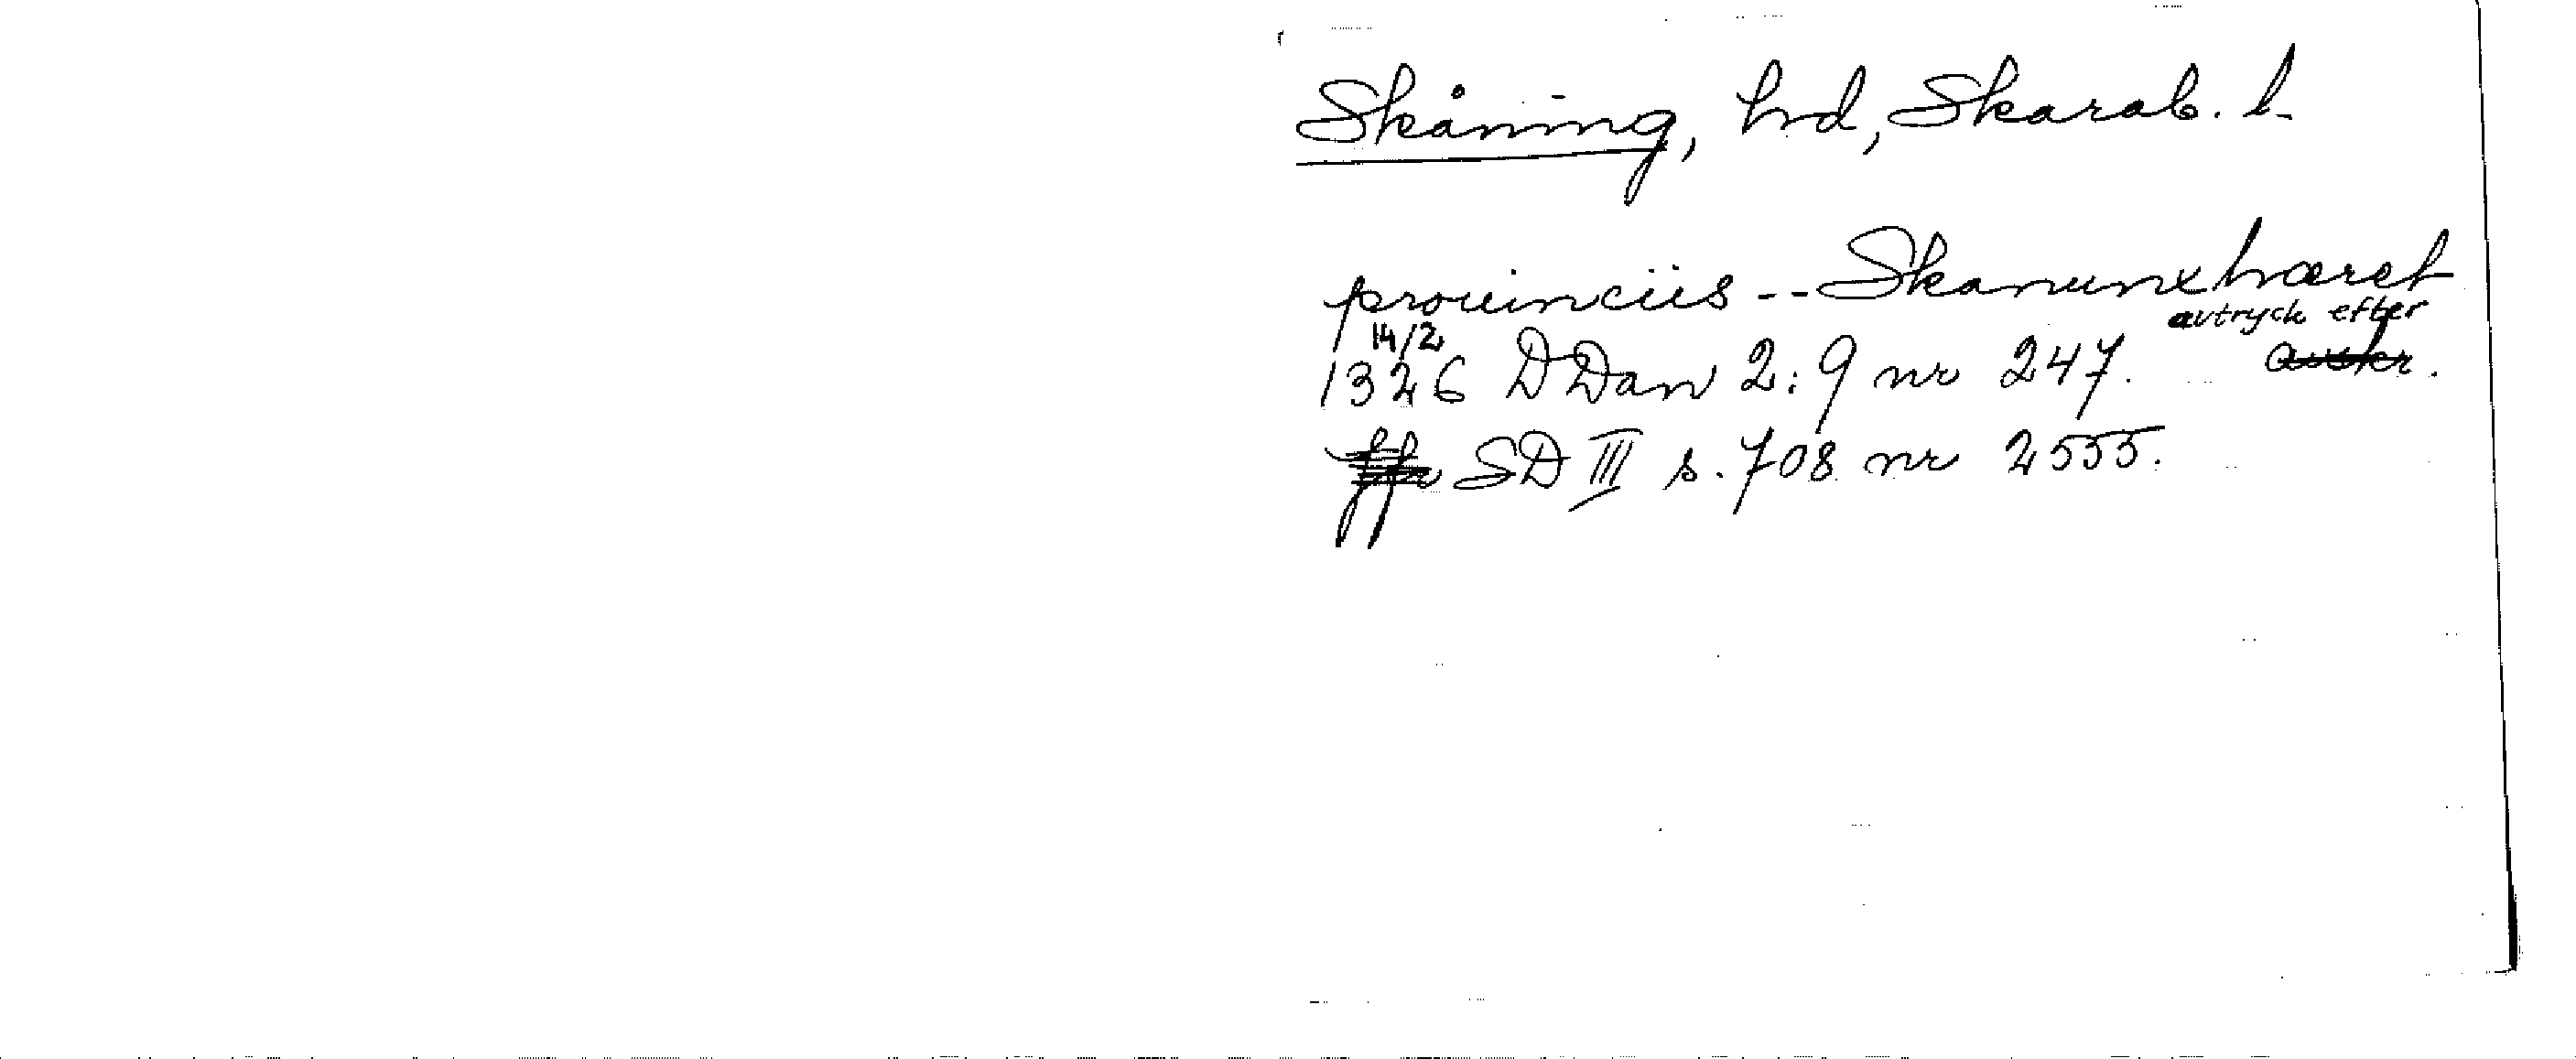 Skåning, hrd, Skarab. l.
prouinciis -- Skanunxhæret
14/2 avtryck efter
1326 DDan 2:9 nr 247.
SD III s. 708 nr 2555.